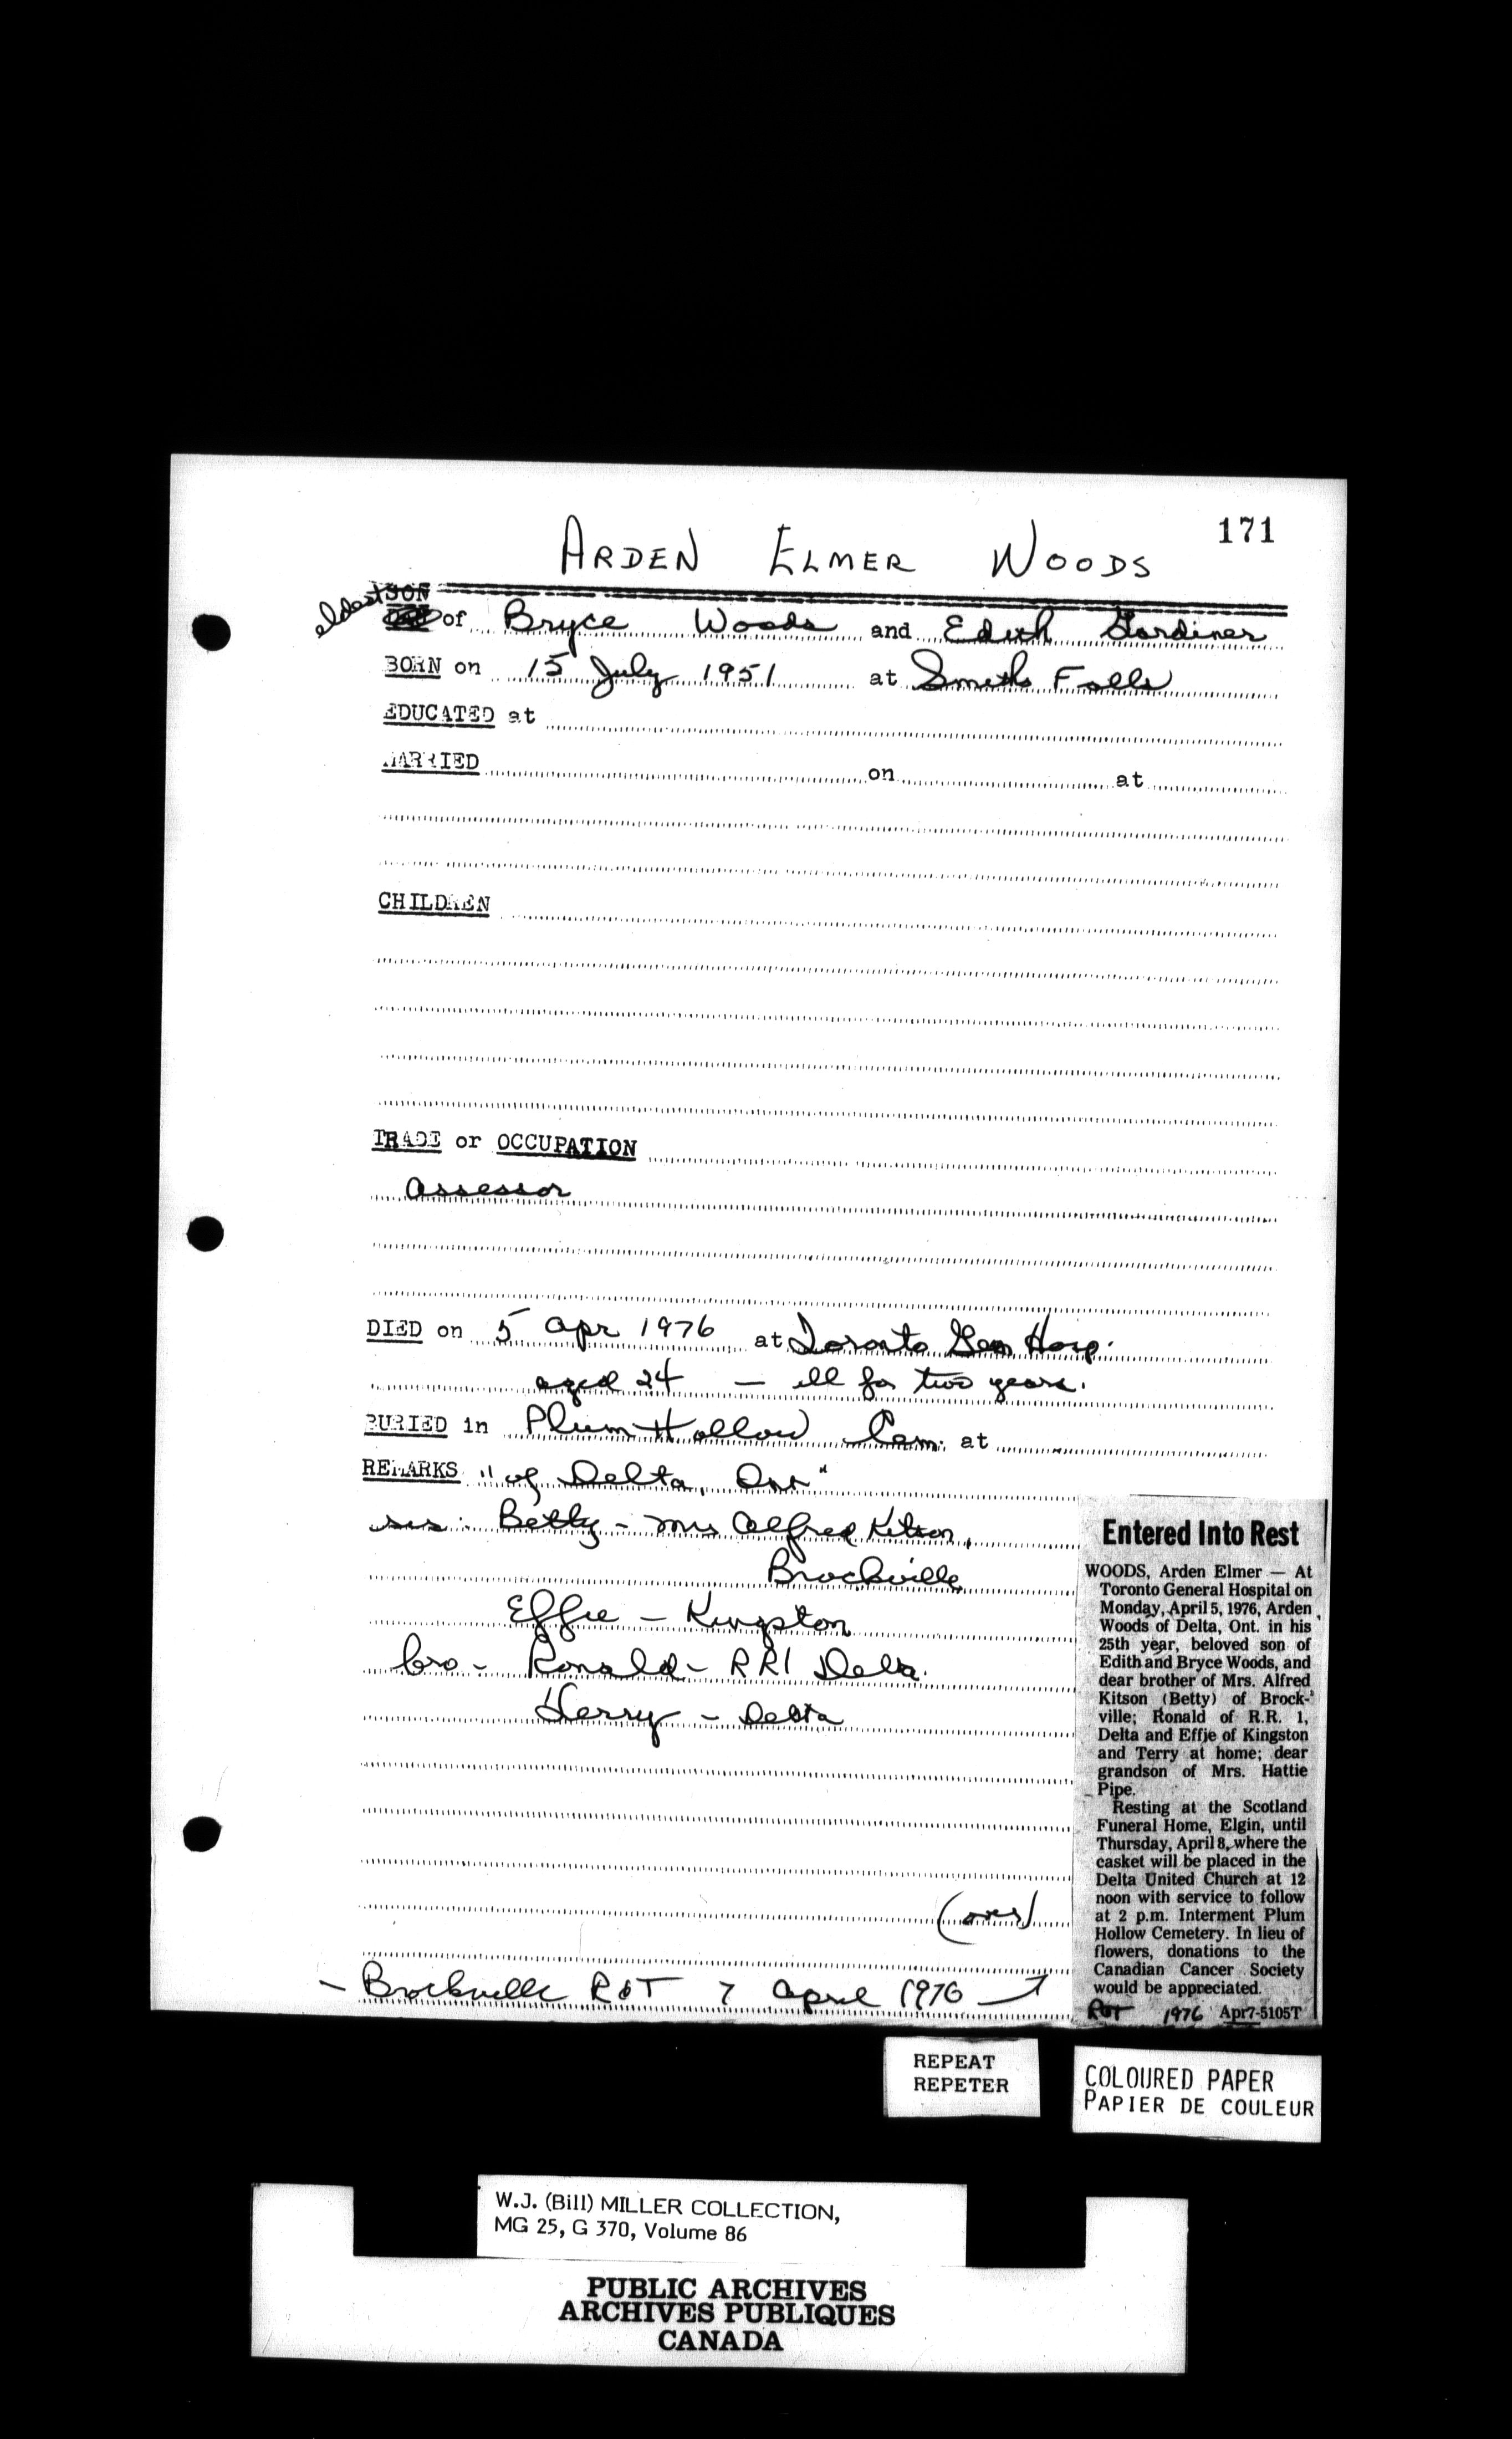 171
ARDEN ELMER WOODS
eldest SON
of Bryce Woods and Edith Gardiner
BORN on 15 July 1951 at Smiths Falls
EDUCATED at
MARRIED on at
CHILDREN
TRADE or OCCUPATION
assessor
DIED on 5 apr 1976 at Toronto Gen Hosp.
aged 24 — ill for two years.
BURIED in Plum Hollow Cem. at
REMARKS "of Delta, Ont"
sis: Betty - Mrs Alfred Kitson,
Brockville
Effie - Kingston
bro - Ronald - RR1 Delta.
Terry - Delta
(over)
- Brockville R&T 7 April 1976
Entered Into Rest
WOODS, Arden Elmer — At
Toronto General Hospital on
Monday, April 5, 1976, Arden
Woods of Delta, Ont. in his
25th year, beloved son of
Edith and Bryce Woods, and
dear brother of Mrs. Alfred
Kitson (Betty) of Brock-
ville; Ronald of R.R. 1,
Delta and Effie of Kingston
and Terry at home; dear
grandson of Mrs. Hattie
Pipe.
Resting at the Scotland
Funeral Home, Elgin, until
Thursday, April 8, where the
casket will be placed in the
Delta United Church at 12
noon with service to follow
at 2 p.m. Interment Plum
Hollow Cemetery. In lieu of
flowers, donations to the
Canadian Cancer Society
would be appreciated.
R&T 1976 Apr7-5105T
REPEAT
REPETER
COLOURED PAPER
PAPIER DE COULEUR
W.J. (Bill) MILLER COLLECTION,
MG 25, G 370, Volume 86
PUBLIC ARCHIVES
ARCHIVES PUBLIQUES
CANADA